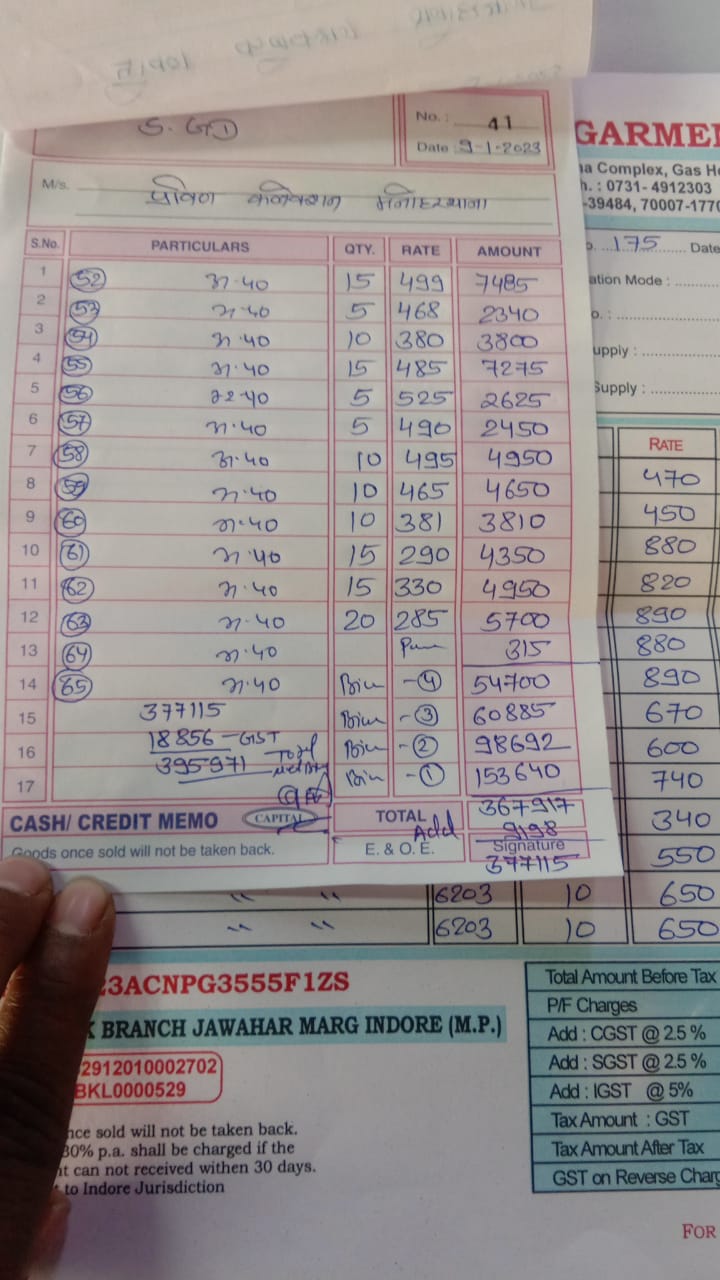 S. GD
No. : 41
Date : 9-1-2023
M/s. प्रविण कलेक्शन मनोहरथाना
S.No. PARTICULARS QTY. RATE AMOUNT
1 52 अ.40 15 499 7485
2 53 अ.40 5 468 2340
3 54 अ.40 10 380 3800
4 55 अ.40 15 485 7275
5 56 22-40 5 525 2625
6 57 अ.40 5 490 2450
7 58 अ.40 10 495 4950
8 59 अ.40 10 465 4650
9 60 अ.40 10 381 3810
10 61 अ.40 15 290 4350
11 62 अ.40 15 330 4950
12 63 अ.40 20 285 5700
13 64 अ.40 315
14 65 अ.40 - 4 54700
15 377115 - 3 60885
16 18856 - GST - 2 98692
395971 Total
17 - 1 153640
CASH/ CREDIT MEMO CAPITAL TOTAL 367917
Add 9198
Goods once sold will not be taken back. E. & O. E. Signature
377115
GARMEN
na Complex, Gas Ho
h. : 0731- 4912303
-39484, 70007-1770
o. 175 Date
ation Mode :
o. :
upply :
Supply :
RATE
470
450
880
820
890
880
890
670
600
740
340
550
" " 6203 10 650
" " 6203 10 650
23ACNPG3555F1ZS
K BRANCH JAWAHAR MARG INDORE (M.P.)
2912010002702
BKL0000529
nce sold will not be taken back.
30% p.a. shall be charged if the
nt can not received withen 30 days.
to Indore Jurisdiction
Total Amount Before Tax
P/F Charges
Add : CGST @ 2.5 %
Add : SGST @ 2.5 %
Add : IGST @ 5%
Tax Amount : GST
Tax Amount After Tax
GST on Reverse Charg
FOR